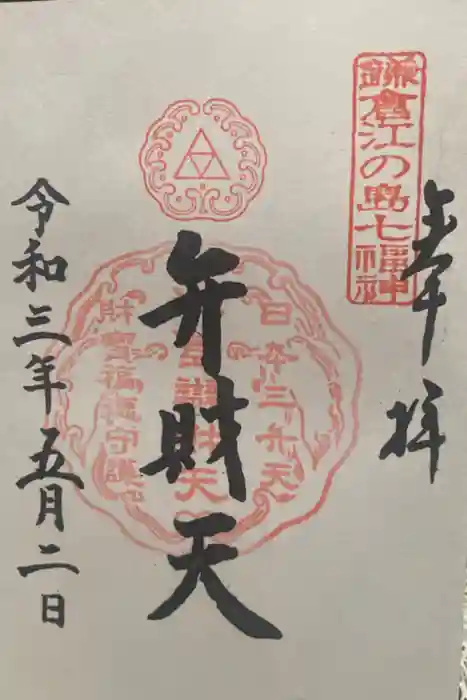 鎌倉江の島七福神
奉拝
日本三弁天
弁財天
財寶福徳守護
令和三年五月二日